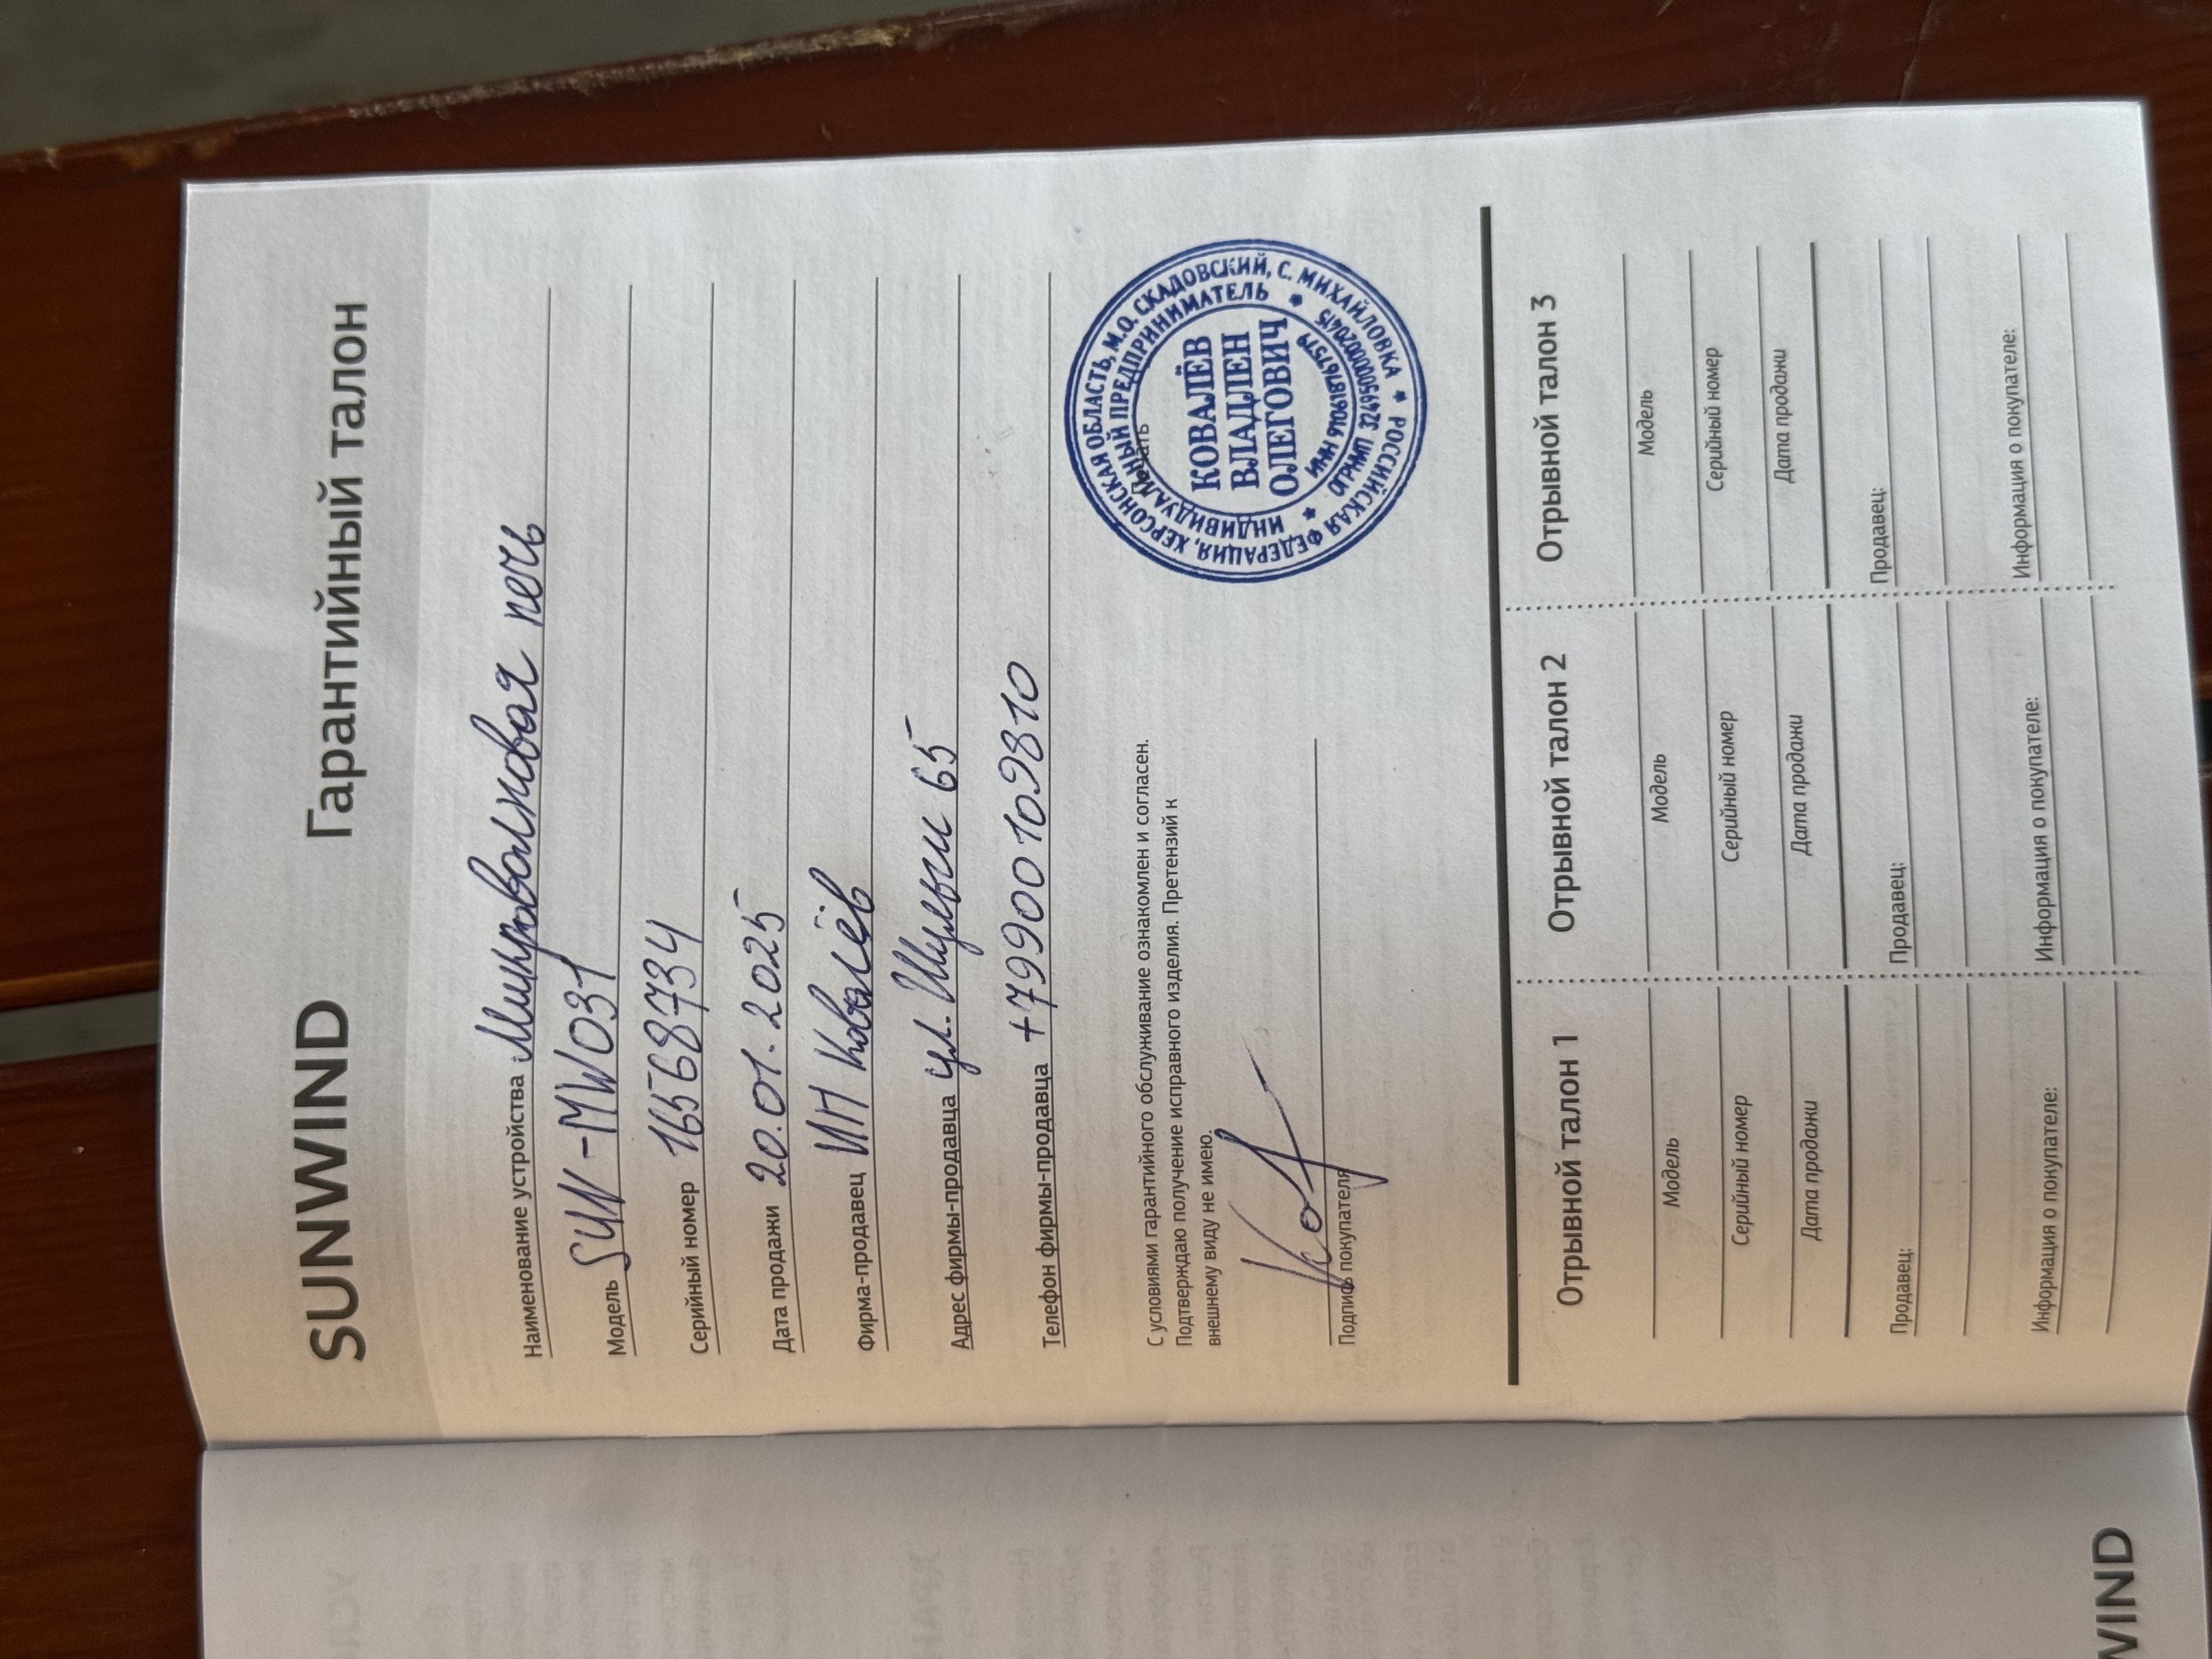 SUNWIND Гарантийный талон
Наименование устройства Микроволновая печь
Модель SUN-MW031
Серийный номер 16568734
Дата продажи 20.01.2025
Фирма-продавец ИП Ковалёв
Адрес фирмы-продавца ул. Шульги 65
Телефон фирмы-продавца +79900109810
С условиями гарантийного обслуживание ознакомлен и согласен.
Подтверждаю получение исправного изделия. Претензий к
внешнему виду не имею.
Подпись покупателя
Печать
РОССИЙСКАЯ ФЕДЕРАЦИЯ, ХЕРСОНСКАЯ ОБЛАСТЬ, М.О. СКАДОВСКИЙ, С. МИХАЙЛОВКА
ИНДИВИДУАЛЬНЫЙ ПРЕДПРИНИМАТЕЛЬ
КОВАЛЁВ
ВЛАДЛЕН
ОЛЕГОВИЧ
ИНН
ОГРНИП
Отрывной талон 1
Модель
Серийный номер
Дата продажи
Продавец:
Информация о покупателе:
Отрывной талон 2
Модель
Серийный номер
Дата продажи
Продавец:
Информация о покупателе:
Отрывной талон 3
Модель
Серийный номер
Дата продажи
Продавец:
Информация о покупателе: